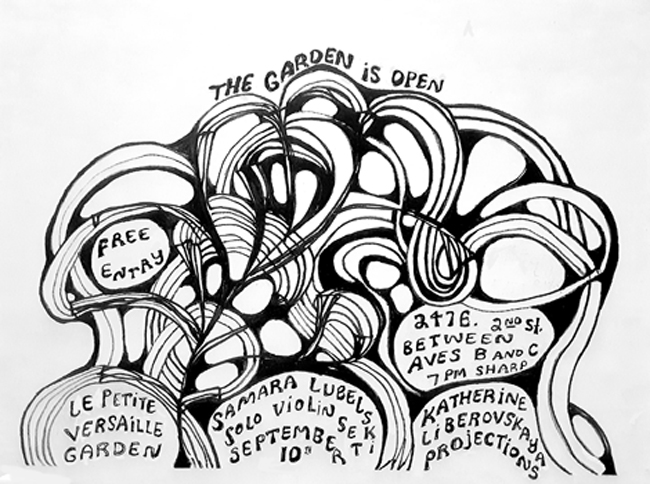 THE GARDEN iS OPEN
FREE
ENTRY
2476. 2ND St.
BETWEEN
AVES B AND C
7 PM SHARP
LE PETITE
VERSAILLE
GARDEN
SAMARA LUBELSKI
SOLO VIOLIN SET
SEPTEMBER
10th
KATHERINE
LiBEROVSKAYA
PROJECTIONS